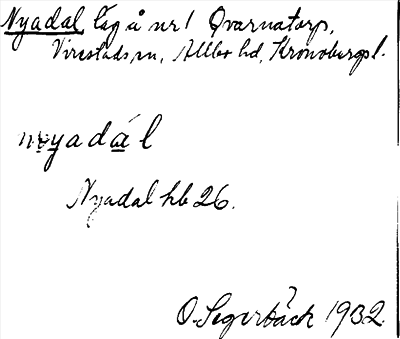 Nyadal, läg å nr 1 Qvarnatorp,
Virestads sn, Allbo hd, Kronobergs l.
nyadál
Nyadal hb 26.
O. Segerbäck 1932.